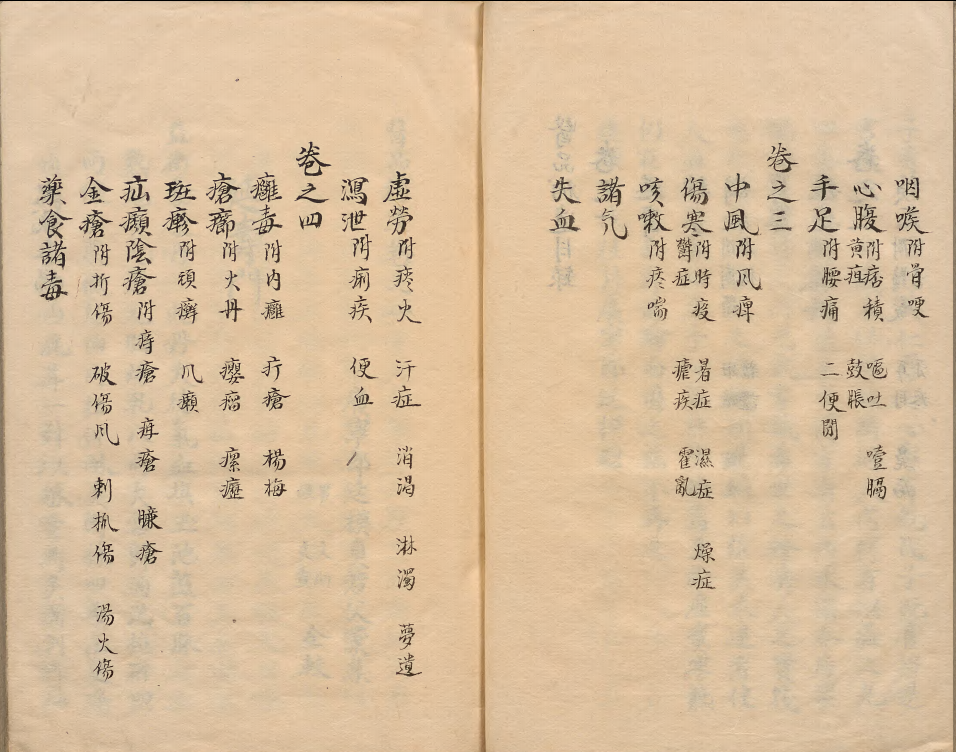 咽喉 附骨哽
心腹 附痞積 嘔吐 噎膈
黄疸 鼓脹
手足 附腰痛 二便閉
卷之三
中風 附风痺
傷寒 附時疫 暑症 濕症 燥症
鬱症 瘧疾 霍亂
咳嗽 附痰喘
諸气
失血
虛勞 附痰火 汗症 消渴 淋濁 夢遺
瀉泄 附痢疾 便血
卷之四
癰毒 附内癰 疔瘡 楊梅
瘡癤 附火丹 癭瘤 瘰癧
斑疹 附頑癬 风癩
疝㿗陰瘡 附痔瘡 疳瘡 臁瘡
金瘡 附折傷 破傷风 刺抓傷 湯火傷
藥食諸毒